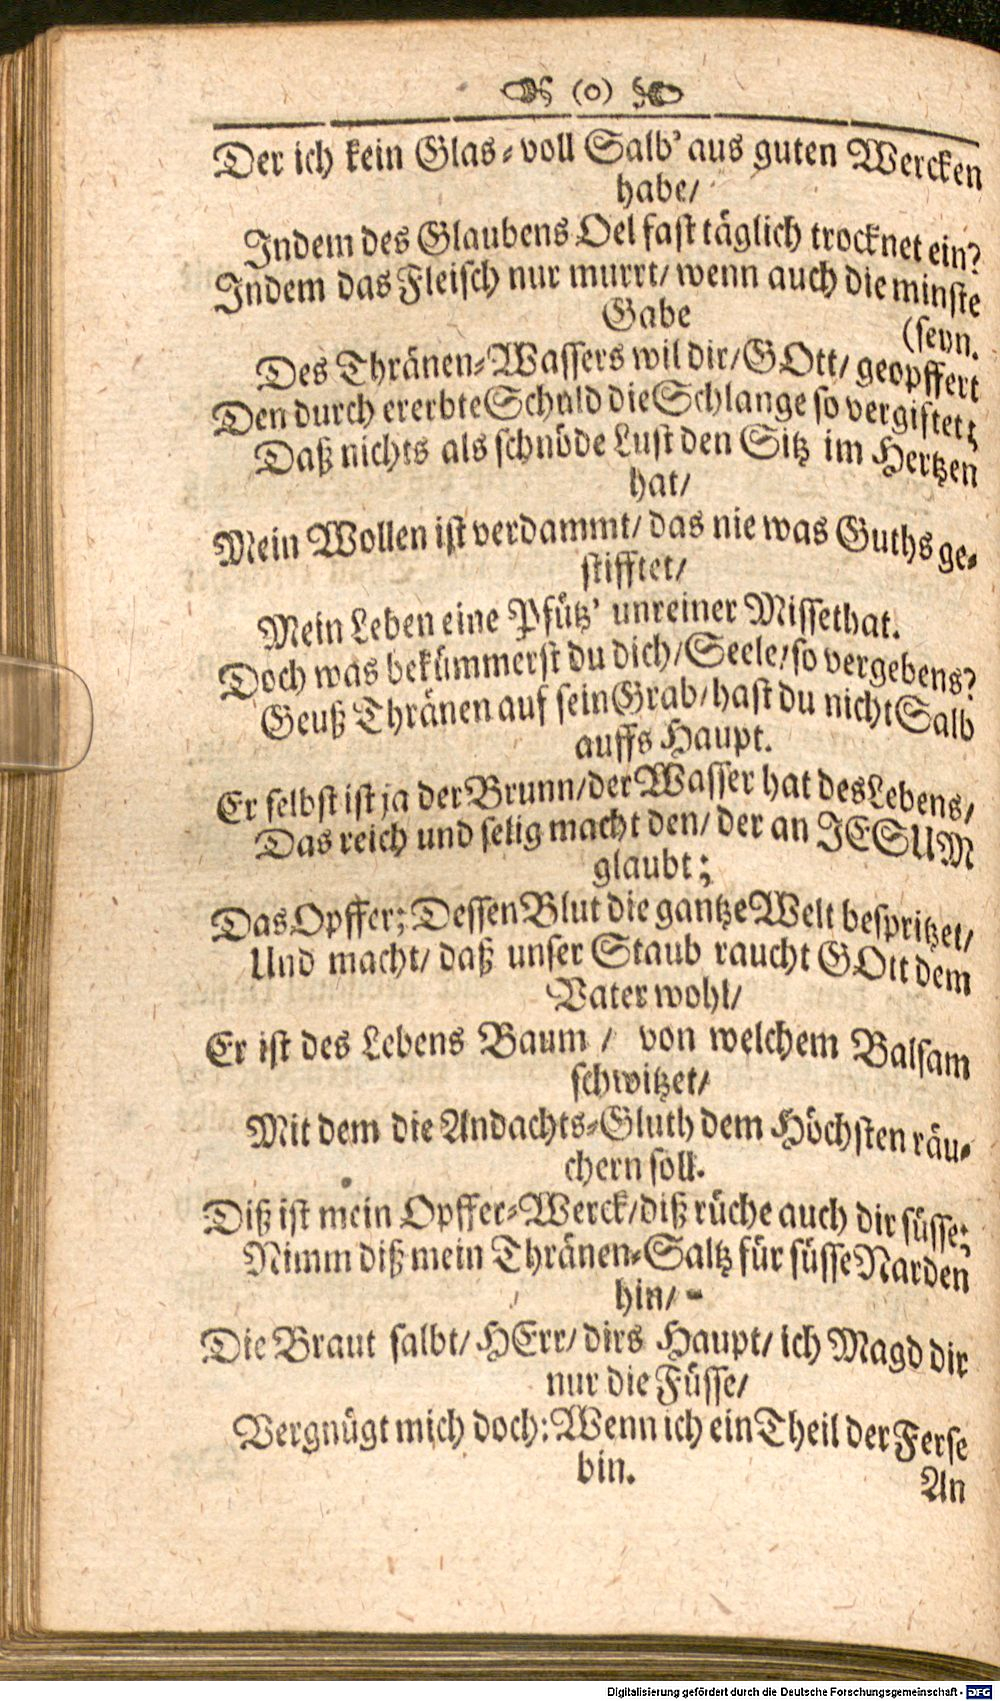 (o)
Der ich kein Glas-voll Salb' aus guten Wercken
habe/
Indem des Glaubens Oel fast täglich trocknet ein?
Indem das Fleisch nur murrt/ wenn auch die minste
Gabe (seyn.
Des Thränen-Wassers wil dir/ GOtt/ geopffert
Den durch ererbte Schuld die Schlange so vergiftet;
Daß nichts als schnöde Lust den Sitz im Hertzen
hat/
Mein Wollen ist verdammt/ das nie was Guths ge-
stifftet/
Mein Leben eine Pfütz' unreiner Missethat.
Doch was bekümmerst du dich/ Seele/ so vergebens?
Geuß Thränen auf sein Grab/ hast du nicht Salb
auffs Haupt.
Er selbst ist ja der Brunn/ der Wasser hat des Lebens/
Das reich und selig macht den/ der an JESUM
glaubt;
Das Opffer; Dessen Blut die gantze Welt bespritzet/
Und macht/ daß unser Staub raucht GOtt dem
Vater wohl/
Er ist des Lebens Baum / von welchem Balsam
schwitzet/
Mit dem die Andachts-Gluth dem Höchsten räu-
chern soll.
Diß ist mein Opffer-Werck/ diß rüche auch dir süsse;
Nimm diß mein Thränen-Saltz für süsse Narden
hin/ -
Die Braut salbt/ HErr/ dirs Haupt/ ich Magd dir
nur die Füsse/
Vergnügt mich doch: Wenn ich ein Theil der Ferse
bin.
An
Digitalisierung gefördert durch die Deutsche Forschungsgemeinschaft - DFG